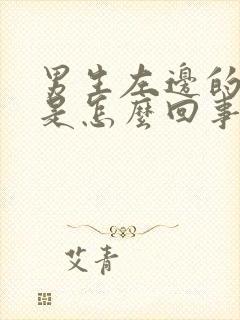 男生左邊的
是怎麼回事
艾青